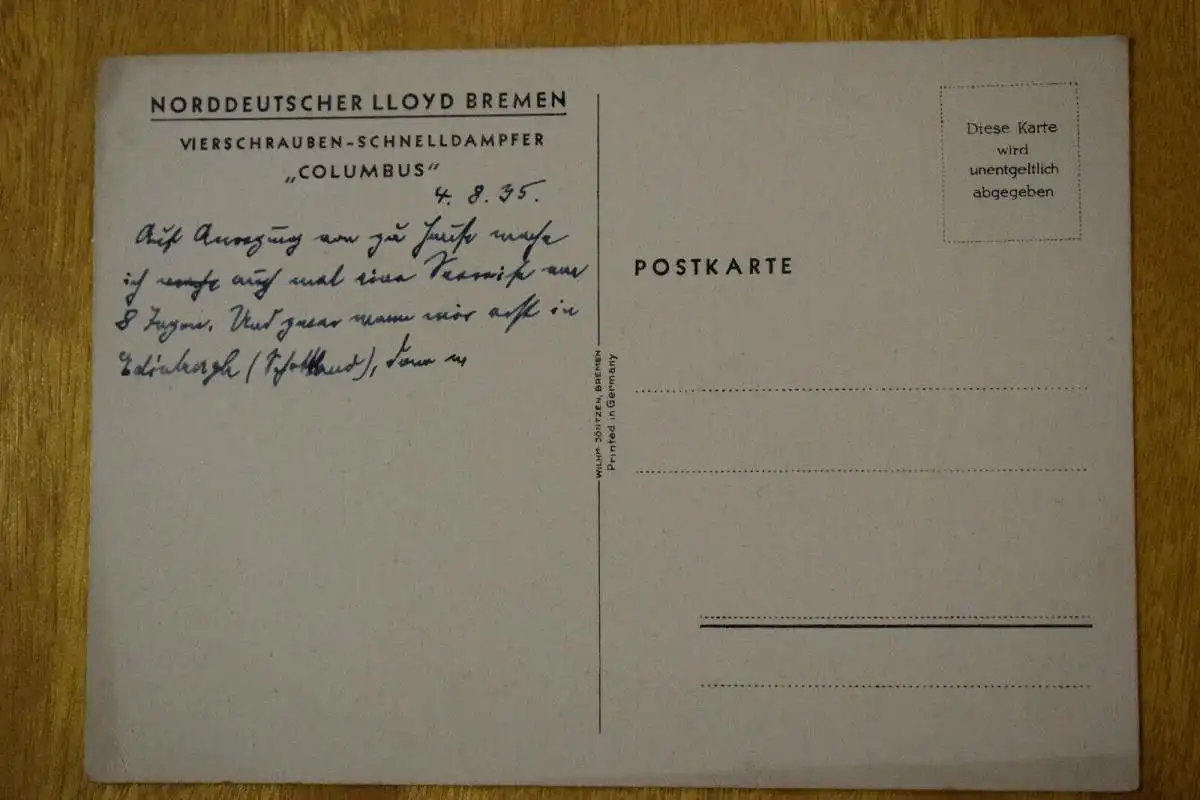 NORDDEUTSCHER LLOYD BREMEN
VIERSCHRAUBEN-SCHNELLDAMPFER
„COLUMBUS“
4. 8. 35.
Auf Anregung von zu Hause mache
ich auch mal eine Seereise von
8 Tagen. Und zwar waren wir erst in
Edinburgh (Schottland), dann
WILHM. JÖNTZEN, BREMEN
Printed in Germany
Diese Karte
wird
unentgeltlich
abgegeben
POSTKARTE